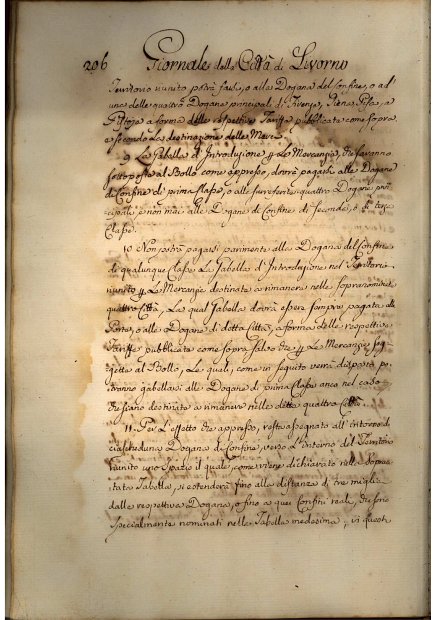 296 Giornale della Città di Livorno
Territorio riunito potrà farsi, o alla Dogana del Confine, o ad
una delle quattro Dogane principali di Firenze, Siena, Pisa, a
Pistoja a forma delle respettive Tariffe pubblicate come sopra,
e secondo la destinazione delle Merci.
9. La Gabella d'Introduzione p. le Mercanzie, che saranno
sottoposte al Bollo come appresso, dovrà pagarsi alle Dogane
di Confine di prima Classe, o alle surriferite quattro Dogane prin-
cipali, e non mai alle Dogane di Confine di seconda, o di terza
Classe.
10. Non potrà pagarsi parimente alla Dogana del Confine
di qualunque Classe la Gabella d'Introduzione nel Territorio
riunito p. le Mercanzie destinate a rimanere nelle soprannominate
quattro Città, la qual Gabella dovrà esser sempre pagata alle
Porte, o alle Dogane di detta Città, a forma delle respettive
Tariffe pubblicate come sopra salvo che p. le Mercanzie sog-
gette al Bollo, le quali, come in seguito verrà disposto po-
tranno gabellarsi alle Dogane di prima Classe anca nel caso
che siano destinate a rimanere nelle dette quattro Città.
11. Per l'effetto che appresso, resta assegnato all'intorno di
ciascheduna Dogana di Confine, verso l'interno del Territorio
riunito uno Spazio il quale, come viene dichiarato nella sopraci-
tata Tabella, si estenderà fino alla distanza di tre miglia
dalla respettiva Dogana, o fino a quei Confini reali, che sono
specialmente nominati nella Tabella medesima, in questo